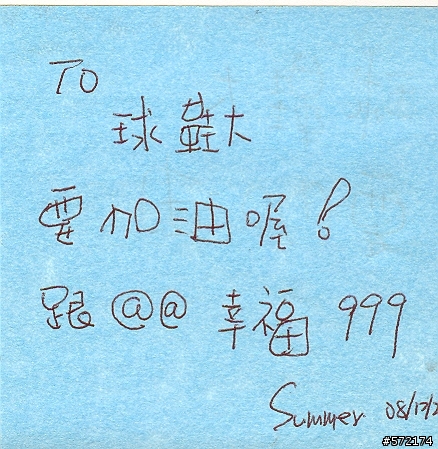 To
球鞋大
要加油喔!
跟@@幸福999
Summer 08/12/2
#572174